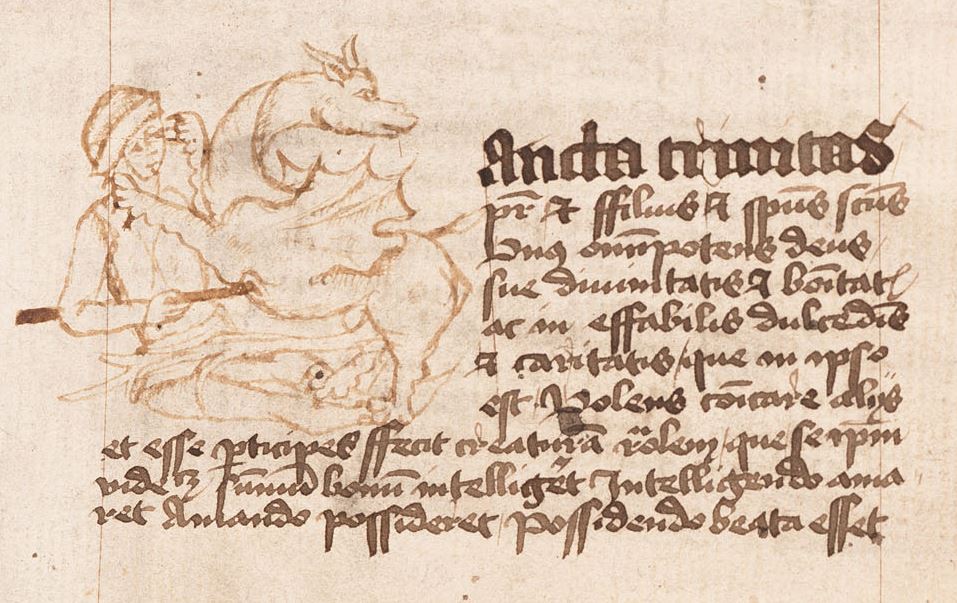 Ancta trinitas
pr̄ et ffilius et sp̄us sc̄us
Unus om̄ipotens deus
sue diuinitatis et bōitatis
ac in effabilis dulcedīs
et caritatis que in ipso
est Volens cōicare alijs
et esse ꝑticipes ffecit creaturā rōlem que se ip̄m
videlꝫ sum̄ū bonū intelligeret Intelligendo ama
ret Amando possideret Possidendo beata esset